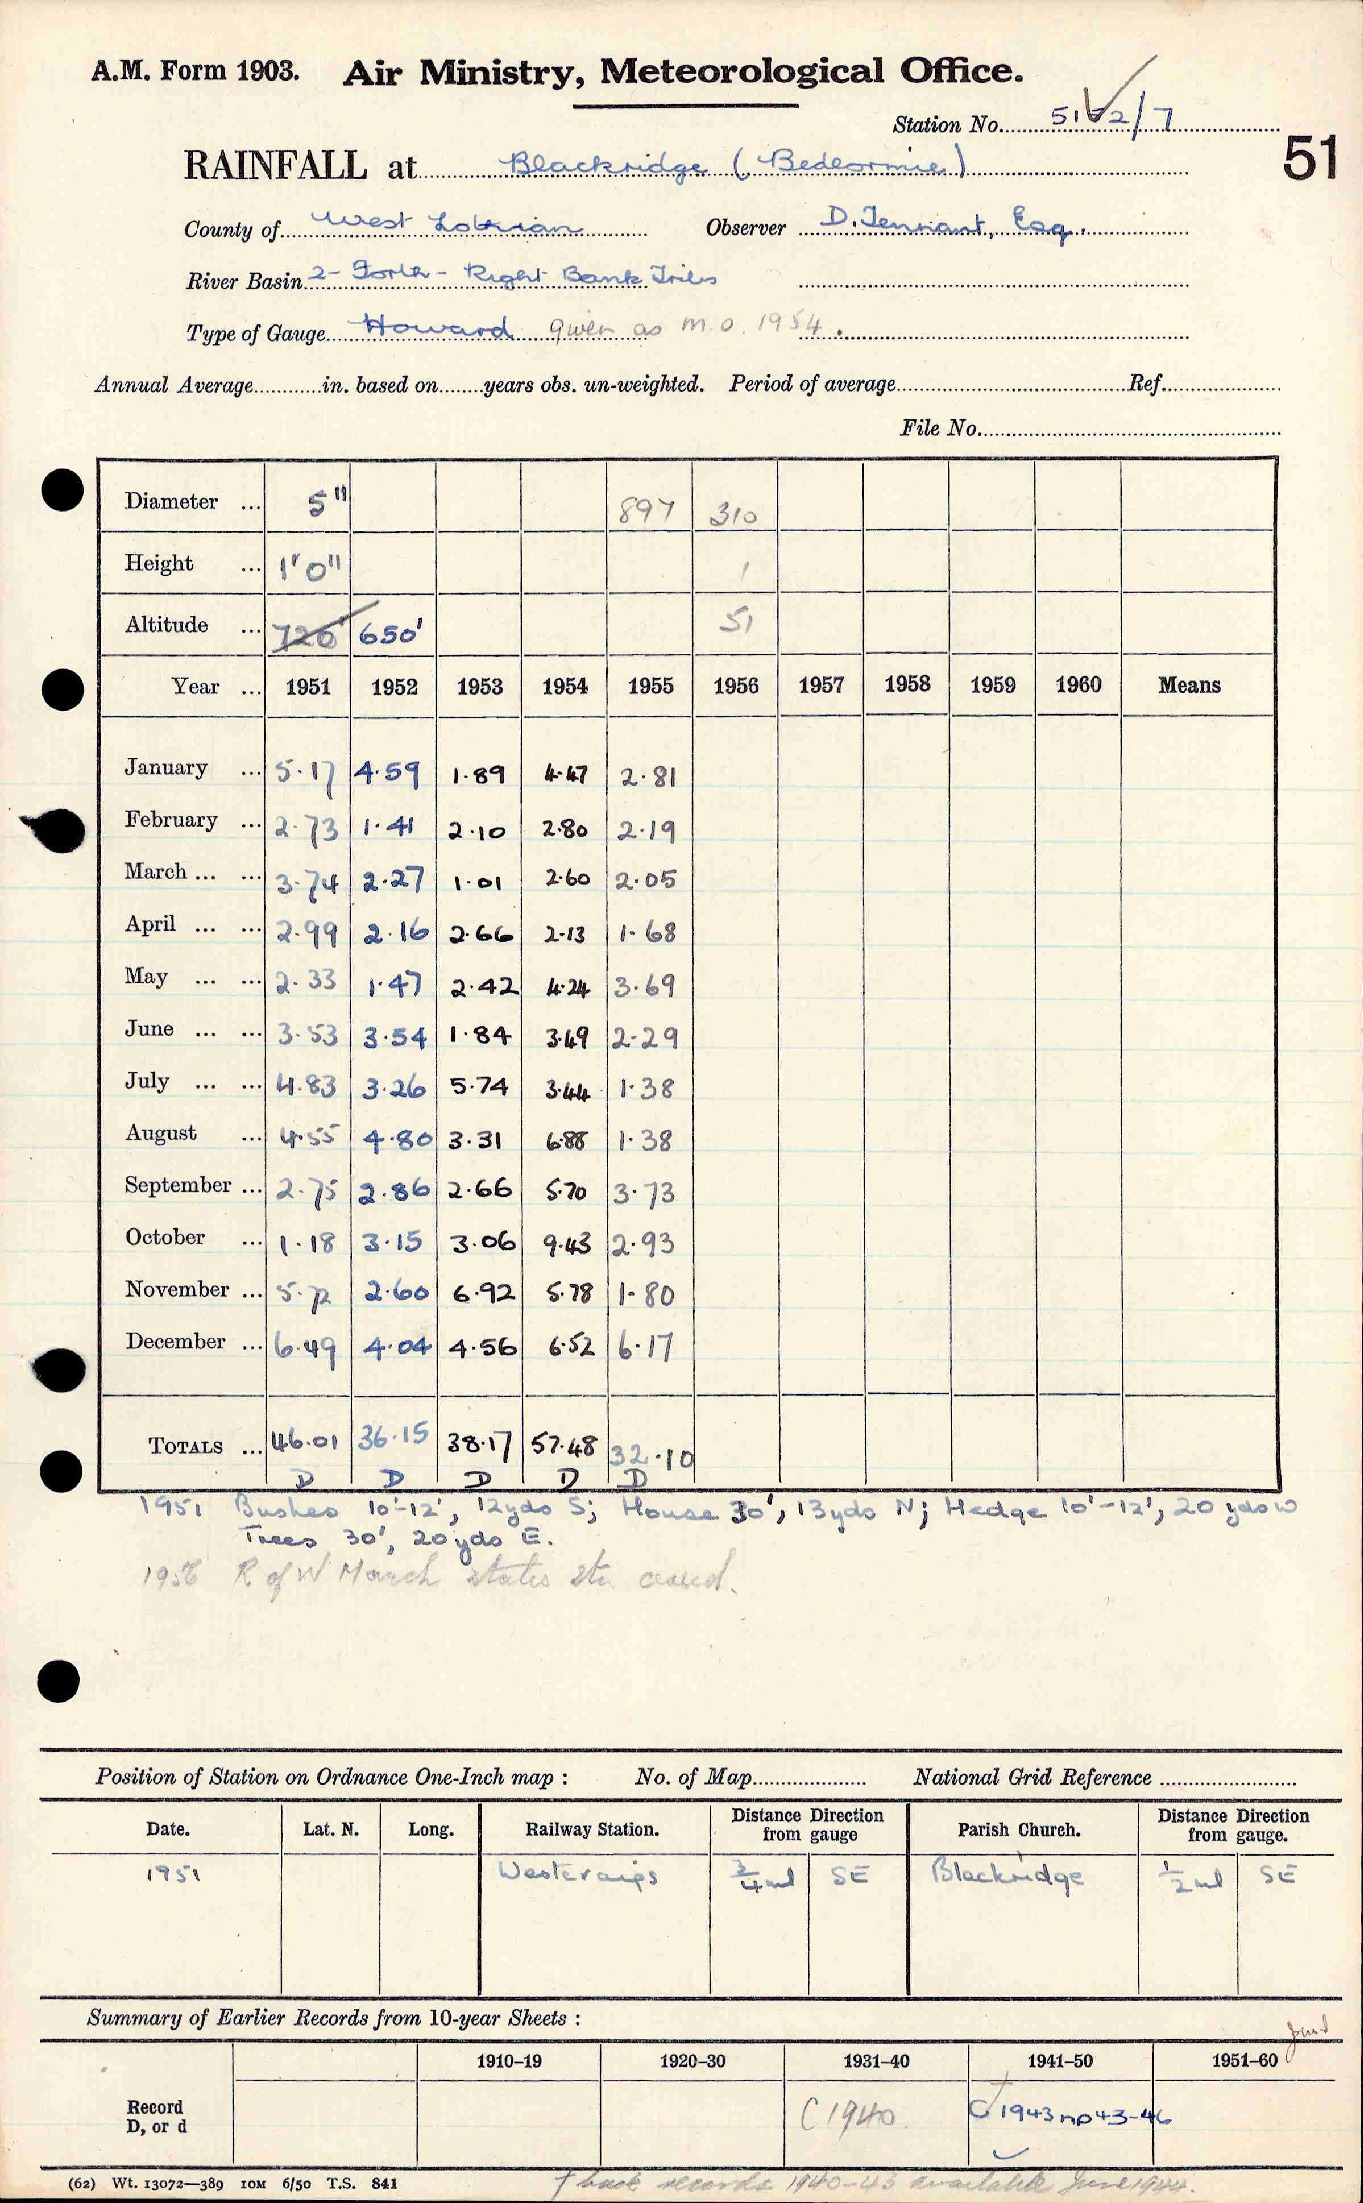 A.M. Form 1903. Air Ministry, Meteorological Office.
Station No. 5162/7
51
RAINFALL at Blackridge (Bedlormie)
County of West Lothian Observer D. Tennant, Esq.
River Basin 2- Forth - Right Bank Tribs
Type of Gauge Howard given as M.O. 1954.
Annual Average in. based on years obs. un-weighted. Period of average Ref.
File No.
Diameter ... 5" 897 310
Height ... 1' 0" 1
Altitude ... 720' 650' 51
Year ... 1951 1952 1953 1954 1955 1956 1957 1958 1959 1960 Means
January ... 5.17 4.59 1.89 4.47 2.81
February ... 2.73 1.41 2.10 2.80 2.19
March ... ... 3.74 2.27 1.01 2.60 2.05
April ... ... 2.99 2.16 2.66 2.13 1.68
May ... ... 2.33 1.47 2.42 4.24 3.69
June ... ... 3.53 3.54 1.84 3.49 2.29
July ... ... 4.83 3.26 5.74 3.44 1.38
August ... 4.55 4.80 3.31 6.88 1.38
September ... 2.75 2.86 2.66 5.70 3.73
October ... 1.18 3.15 3.06 9.43 2.93
November ... 5.72 2.60 6.92 5.78 1.80
December ... 6.49 4.04 4.56 6.52 6.17
TOTALS ... 46.01 36.15 38.17 57.48 32.10
D D D D D
1951 Bushes 10'-12', 12yds S; House 30', 13yds N; Hedge 10'-12', 20 yds W
Trees 30', 20yds E.
1956 R of W March states stn closed.
Position of Station on Ordnance One-Inch map : No. of Map National Grid Reference
Date. Lat. N. Long. Railway Station. Distance Direction from gauge Parish Church. Distance Direction from gauge.
1951 Westcraigs 3/4 ml SE Blackridge 1/2 ml SE
Summary of Earlier Records from 10-year Sheets :
1910–19 1920–30 1931–40 1941–50 1951–60
Record D, or d C 1940 C 1943 np 43-46
(62) Wt. 13072—389 10M 6/50 T.S. 841
† back records 1940-43 available June 1944.